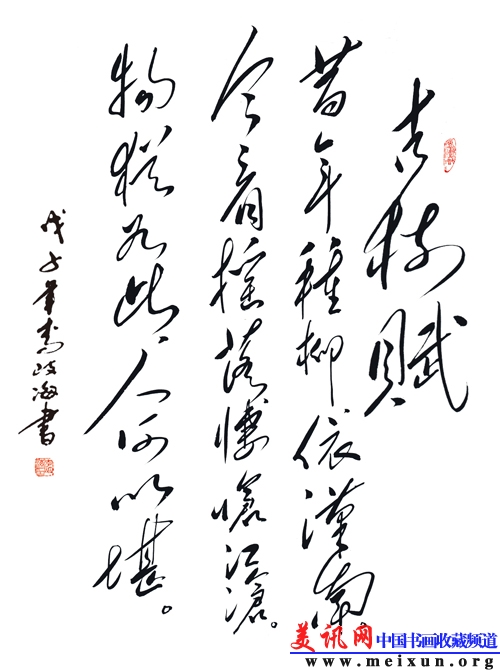 古树賦
昔年種柳依漢南。
今看摇落悽愴江滄。
物猶如此、人何以堪。
戊子年岐海書
美讯网 中国书画收藏频道
www.meixun.org